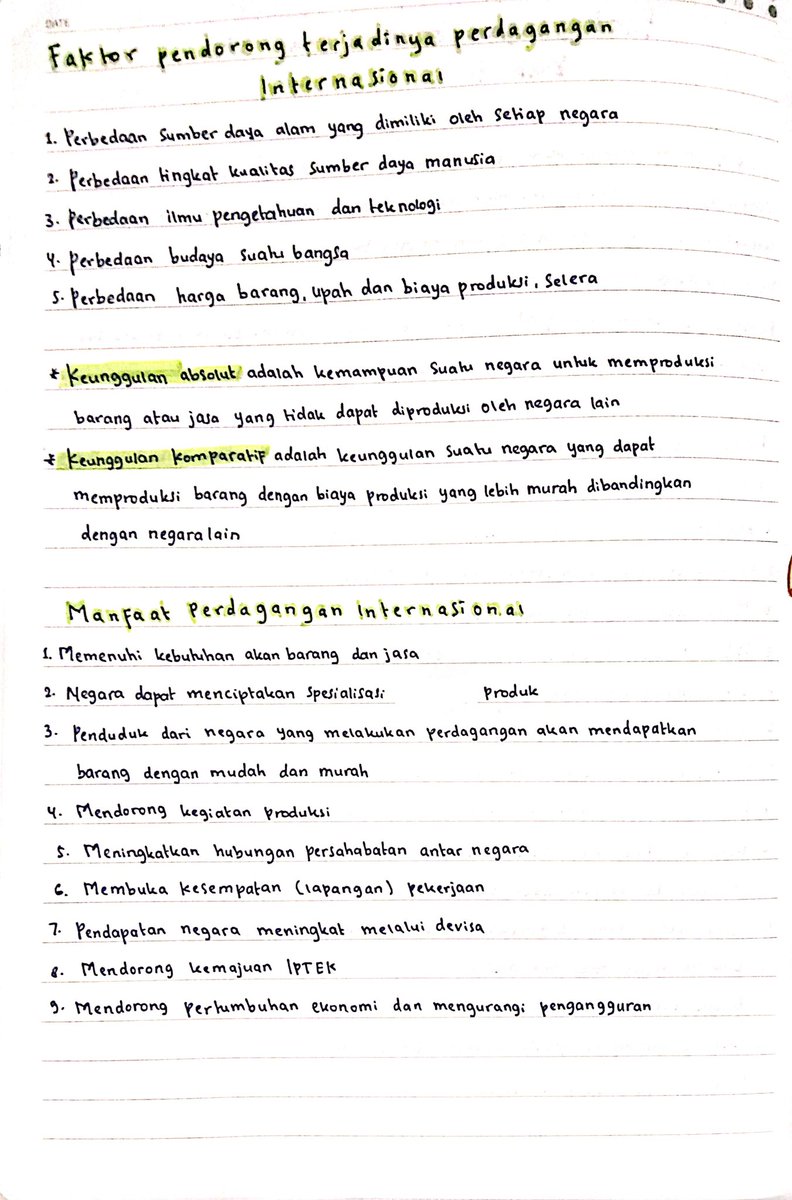 DATE
Faktor pendorong terjadinya perdagangan
Internasional
1. Perbedaan sumber daya alam yang dimiliki oleh setiap negara
2. Perbedaan tingkat kualitas sumber daya manusia
3. Perbedaan ilmu pengetahuan dan teknologi
4. Perbedaan budaya suatu bangsa
5. Perbedaan harga barang, upah dan biaya produksi, selera
* Keunggulan absolut adalah kemampuan suatu negara untuk memproduksi
barang atau jasa yang tidak dapat diproduksi oleh negara lain
* Keunggulan komparatif adalah keunggulan suatu negara yang dapat
memproduksi barang dengan biaya produksi yang lebih murah dibandingkan
dengan negara lain
Manfaat Perdagangan Internasional
1. Memenuhi kebutuhan akan barang dan jasa
2. Negara dapat menciptakan spesialisasi produk
3. Penduduk dari negara yang melakukan perdagangan akan mendapatkan
barang dengan mudah dan murah
4. Mendorong kegiatan produksi
5. Meningkatkan hubungan persahabatan antar negara
6. Membuka kesempatan (lapangan) pekerjaan
7. Pendapatan negara meningkat melalui devisa
8. Mendorong kemajuan IPTEK
9. Mendorong pertumbuhan ekonomi dan mengurangi pengangguran